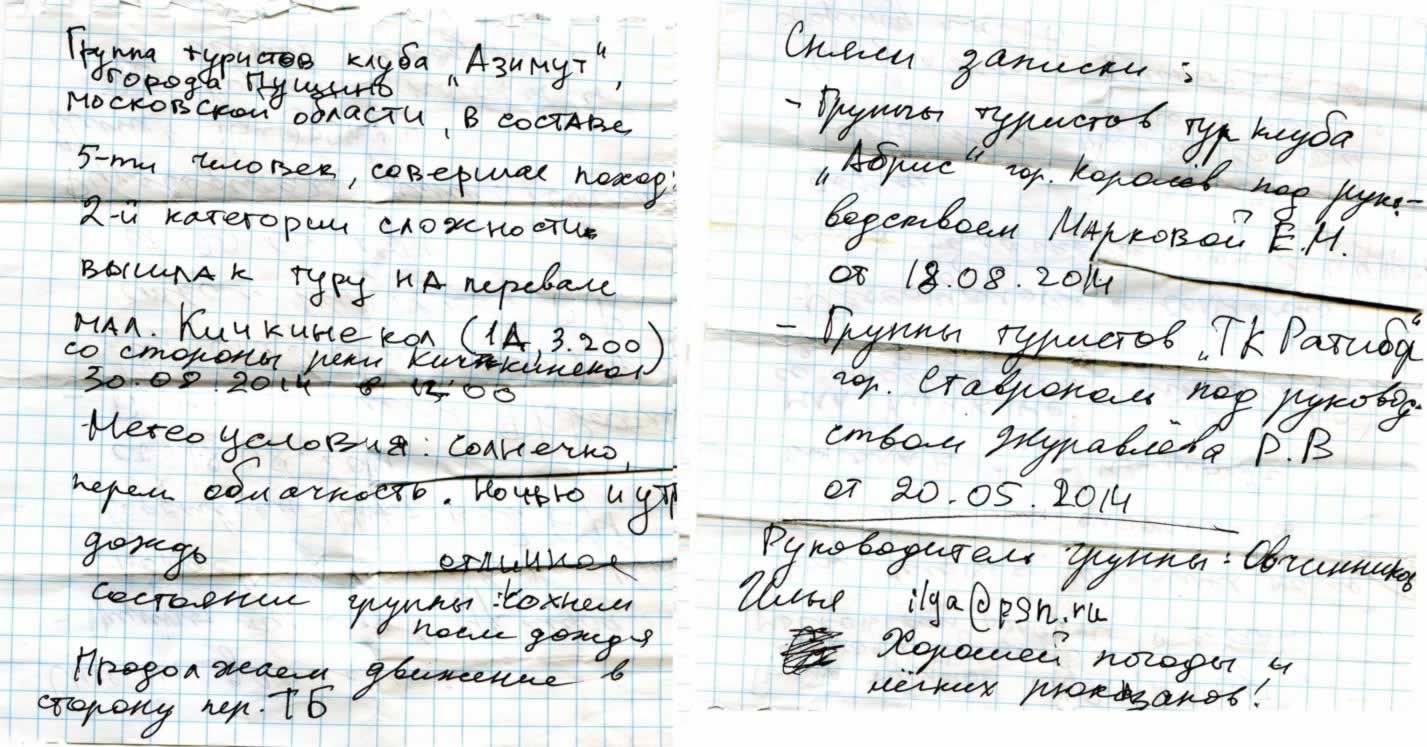 Группа туристов клуба „Азимут“,
города Пущино
московской области, в составе
5-ти человек, совершая поход
2-й категории сложности
вышла к туру на перевале
мал. Кичкинекол (1А, 3.200)
со стороны реки Кичкинекол
30.08.2014 в 12:00
Метеоусловия: солнечно,
перем облачность. Ночью и утр
дождь
отличное
Состояние группы: сохнем
после дождя
Продолжаем движение в
сторону пер. ТБ
Сняли записки:
- Группы туристов турклуба
„Абрис“ гор. Королёв под руко-
водством Марковой Е.Н.
от 18.08.2014
- Группы туристов „ТК Ратибор“
гор. Ставрополь под руковод-
ством Журавлёва Р.В
от 20.05.2014
Руководитель группы: Овчинников
Илья ilya@psn.ru
Хорошей погоды и
лёгких рюкзаков!